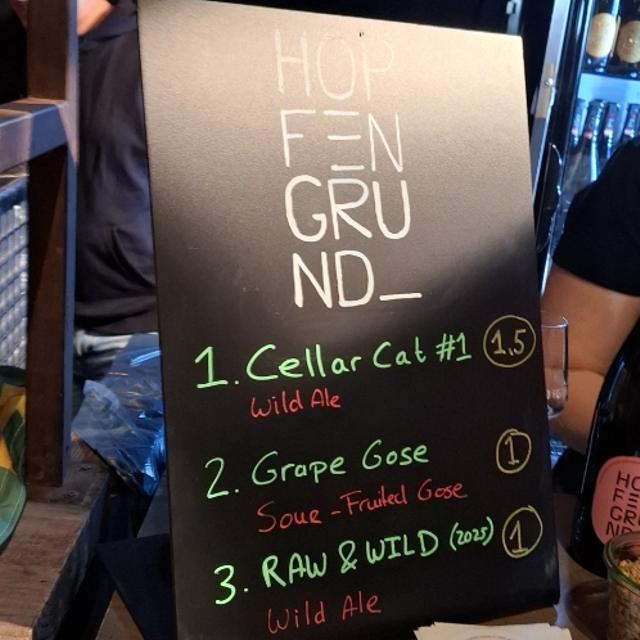 HOP
FEN
GRU
ND_
1. Cellar Cat #1 1.5
Wild Ale
2. Grape Gose 1
Sour-Fruited Gose
3. RAW & WILD (2025) 1
Wild Ale
HO
FE
GR